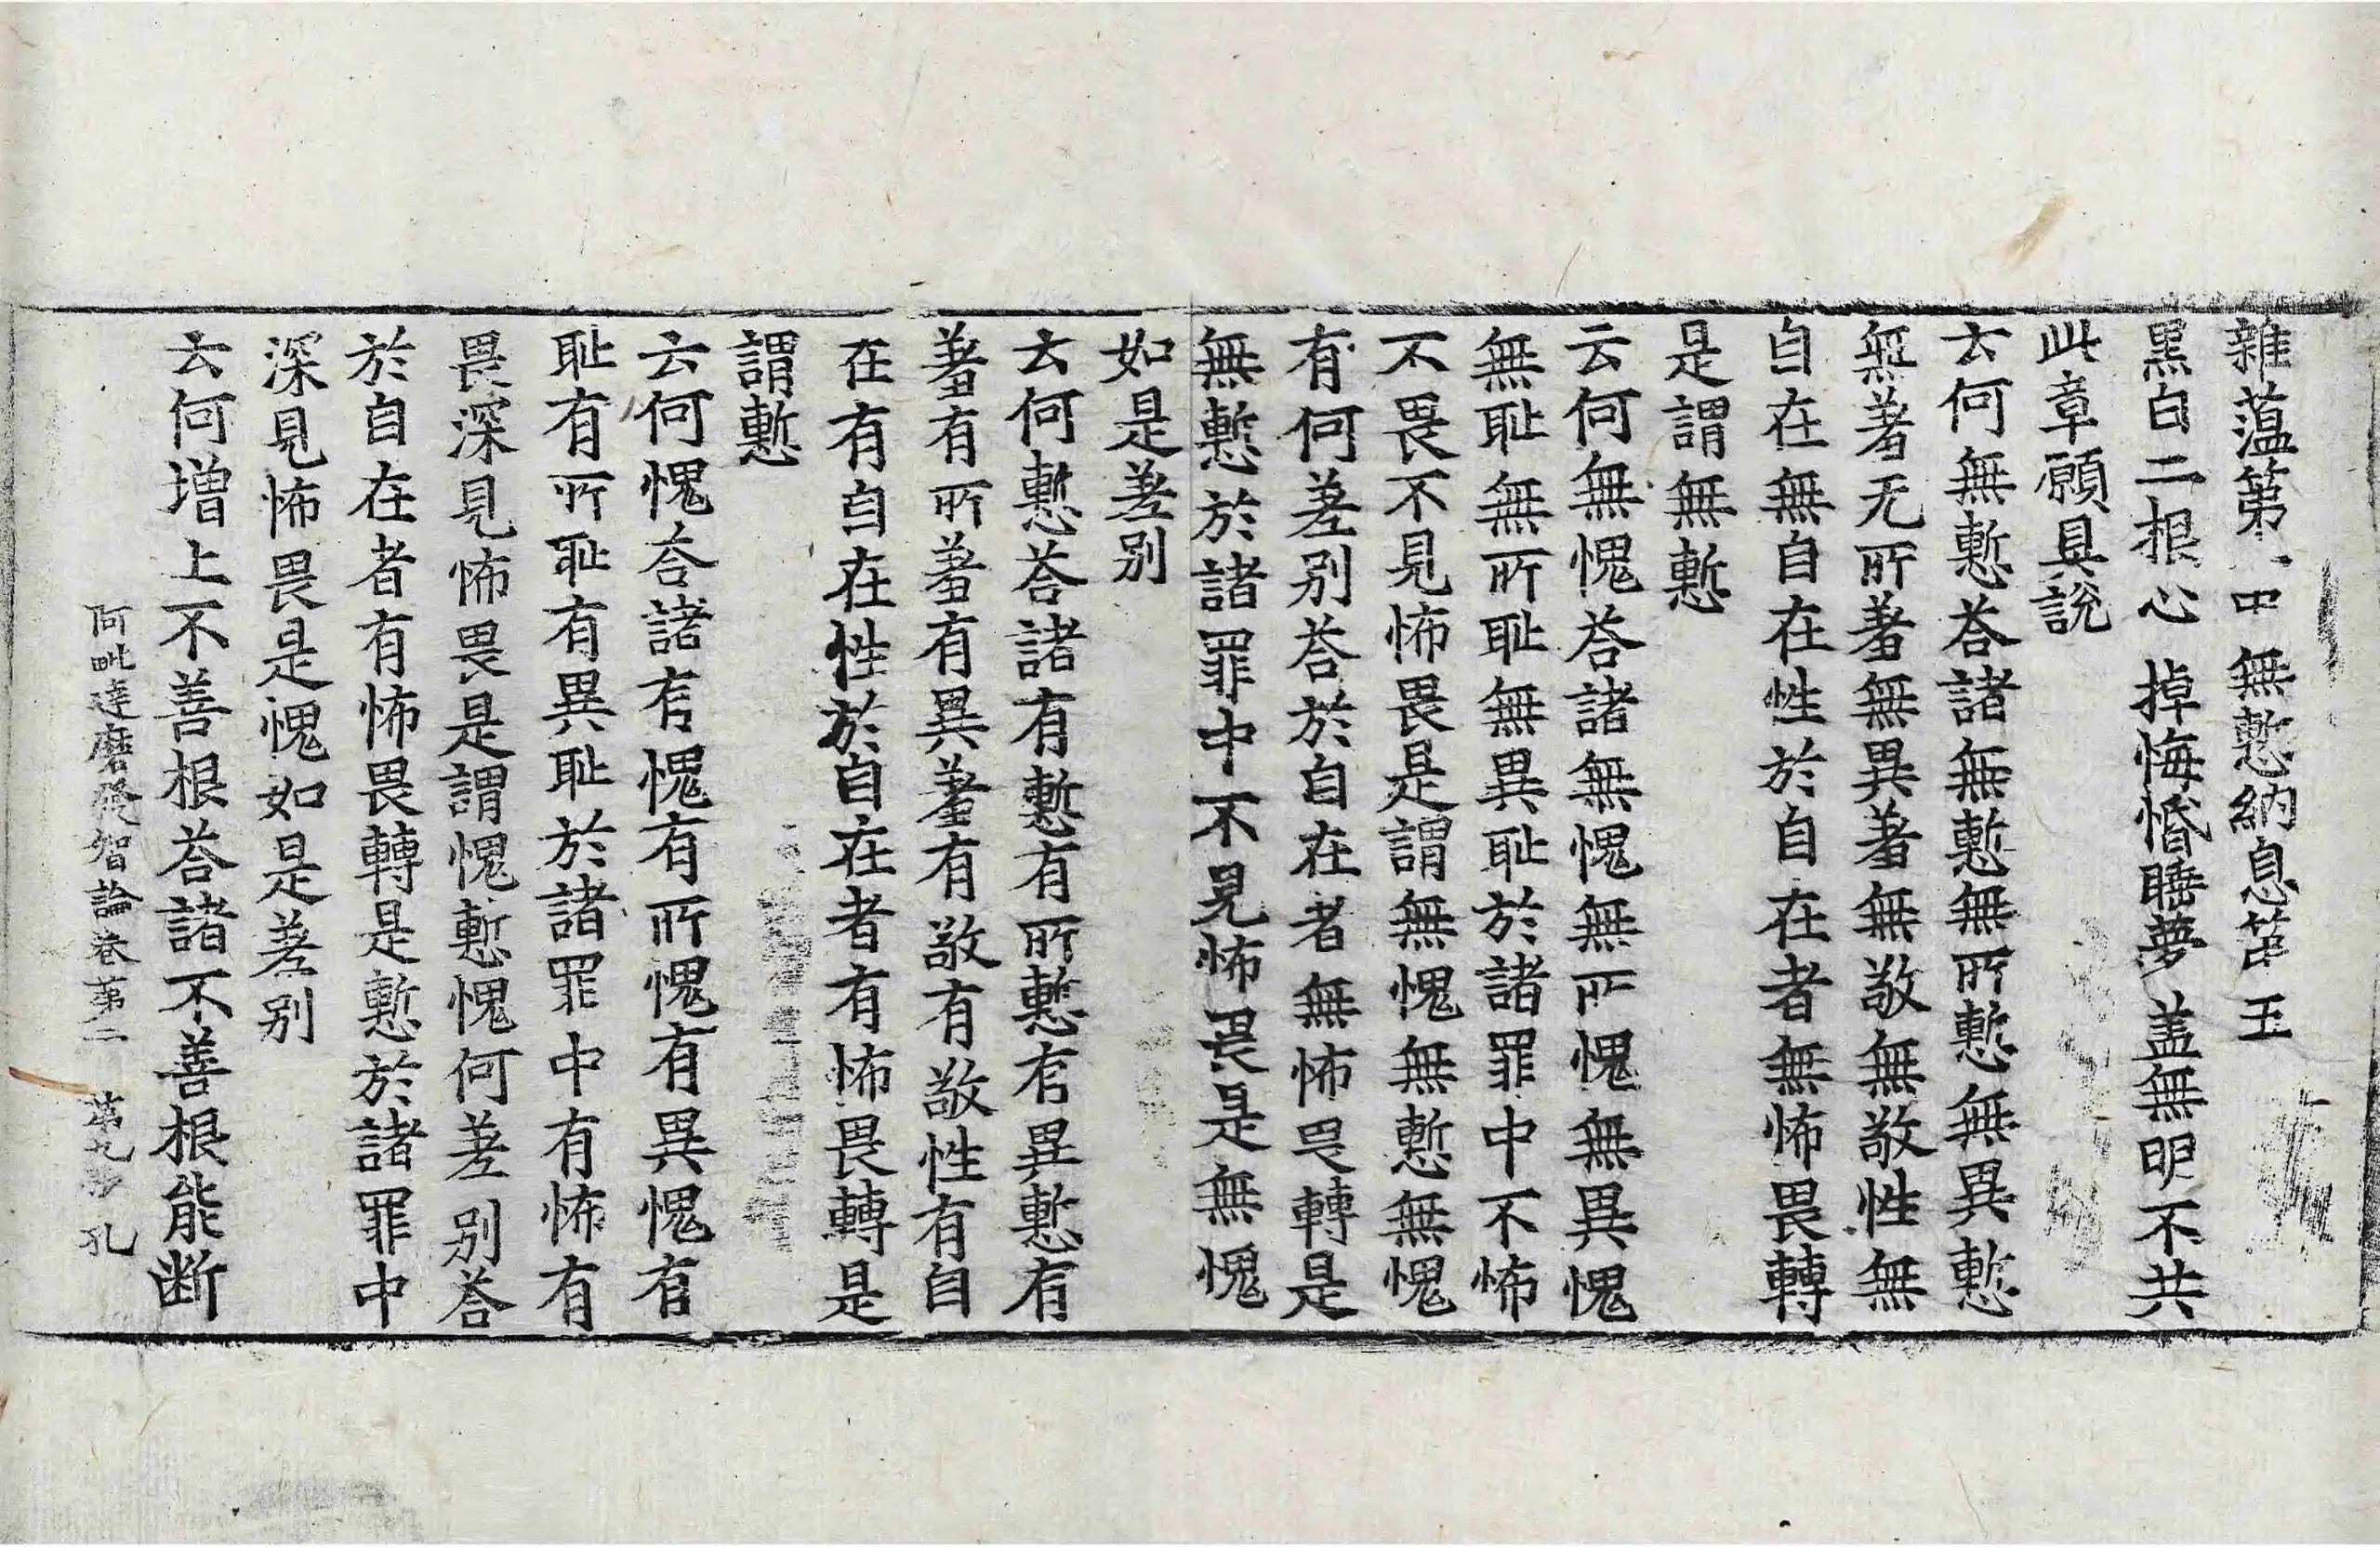 雜蘊第一中無慙納息苐五
黑白二根心　掉悔惛睡夢　盖無明不共
此章願具說
云何無慙荅諸無慙無所慙無異慙
無羞无所羞無異羞無敬無敬性無
自在無自在性於自在者無怖畏轉
是謂無慙
云何無愧荅諸無愧無所愧無異愧
無耻無所耻無異耻於諸罪中不怖
不畏不見怖畏是謂無愧無慙無愧
有何差別荅於自在者無怖畏轉是
無慙於諸罪中不見怖畏是無愧
如是差別
云何慙荅諸有慙有所慙有異慙有
羞有所羞有異羞有敬有敬性有自
在有自在性於自在者有怖畏轉是
謂慙
云何愧荅諸有愧有所愧有異愧有
耻有所耻有異耻於諸罪中有怖有
畏深見怖畏是謂愧慙愧何差別荅
於自在者有怖畏轉是慙於諸罪中
深見怖畏是愧如是差別
云何增上不善根荅諸不善根能断
阿毗達磨發智論卷第二　第九　孔